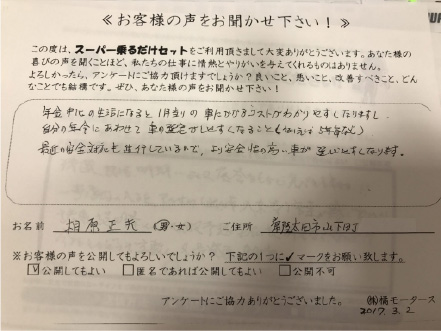 ≪お客様の声をお聞かせ下さい！≫
この度は、スーパー乗るだけセットをご利用頂きまして大変ありがとうございます。あなた様の
喜びの声を聞くことほど、私たちの仕事に情熱とやりがいを与えてくれるものはありません。
よろしかったら、アンケートにご協力頂けますでしょうか？良いこと、悪いこと、改善すべきこと、どん
なことでも結構です。ぜひ、あなた様の声をお聞かせ下さい！
年金中心の生活になると1月当りの車にかかるコストがわかりやすくなりますし
自分の年令にあわせて車の選定がしやすくなること（例えば5年など）
最近の安全対応も進行しているので、より安全性の高い車が選びやすくなります。
お名前 相原正夫 (男・女) ご住所 常陸太田市山下町
※お客様の声を公開してもよろしいでしょうか？ 下記の1つに✓マークをお願い致します。
☑公開してもよい □匿名であれば公開してもよい □公開不可
アンケートにご協力ありがとうございました。 ㈱橘モータース
2017.3.2